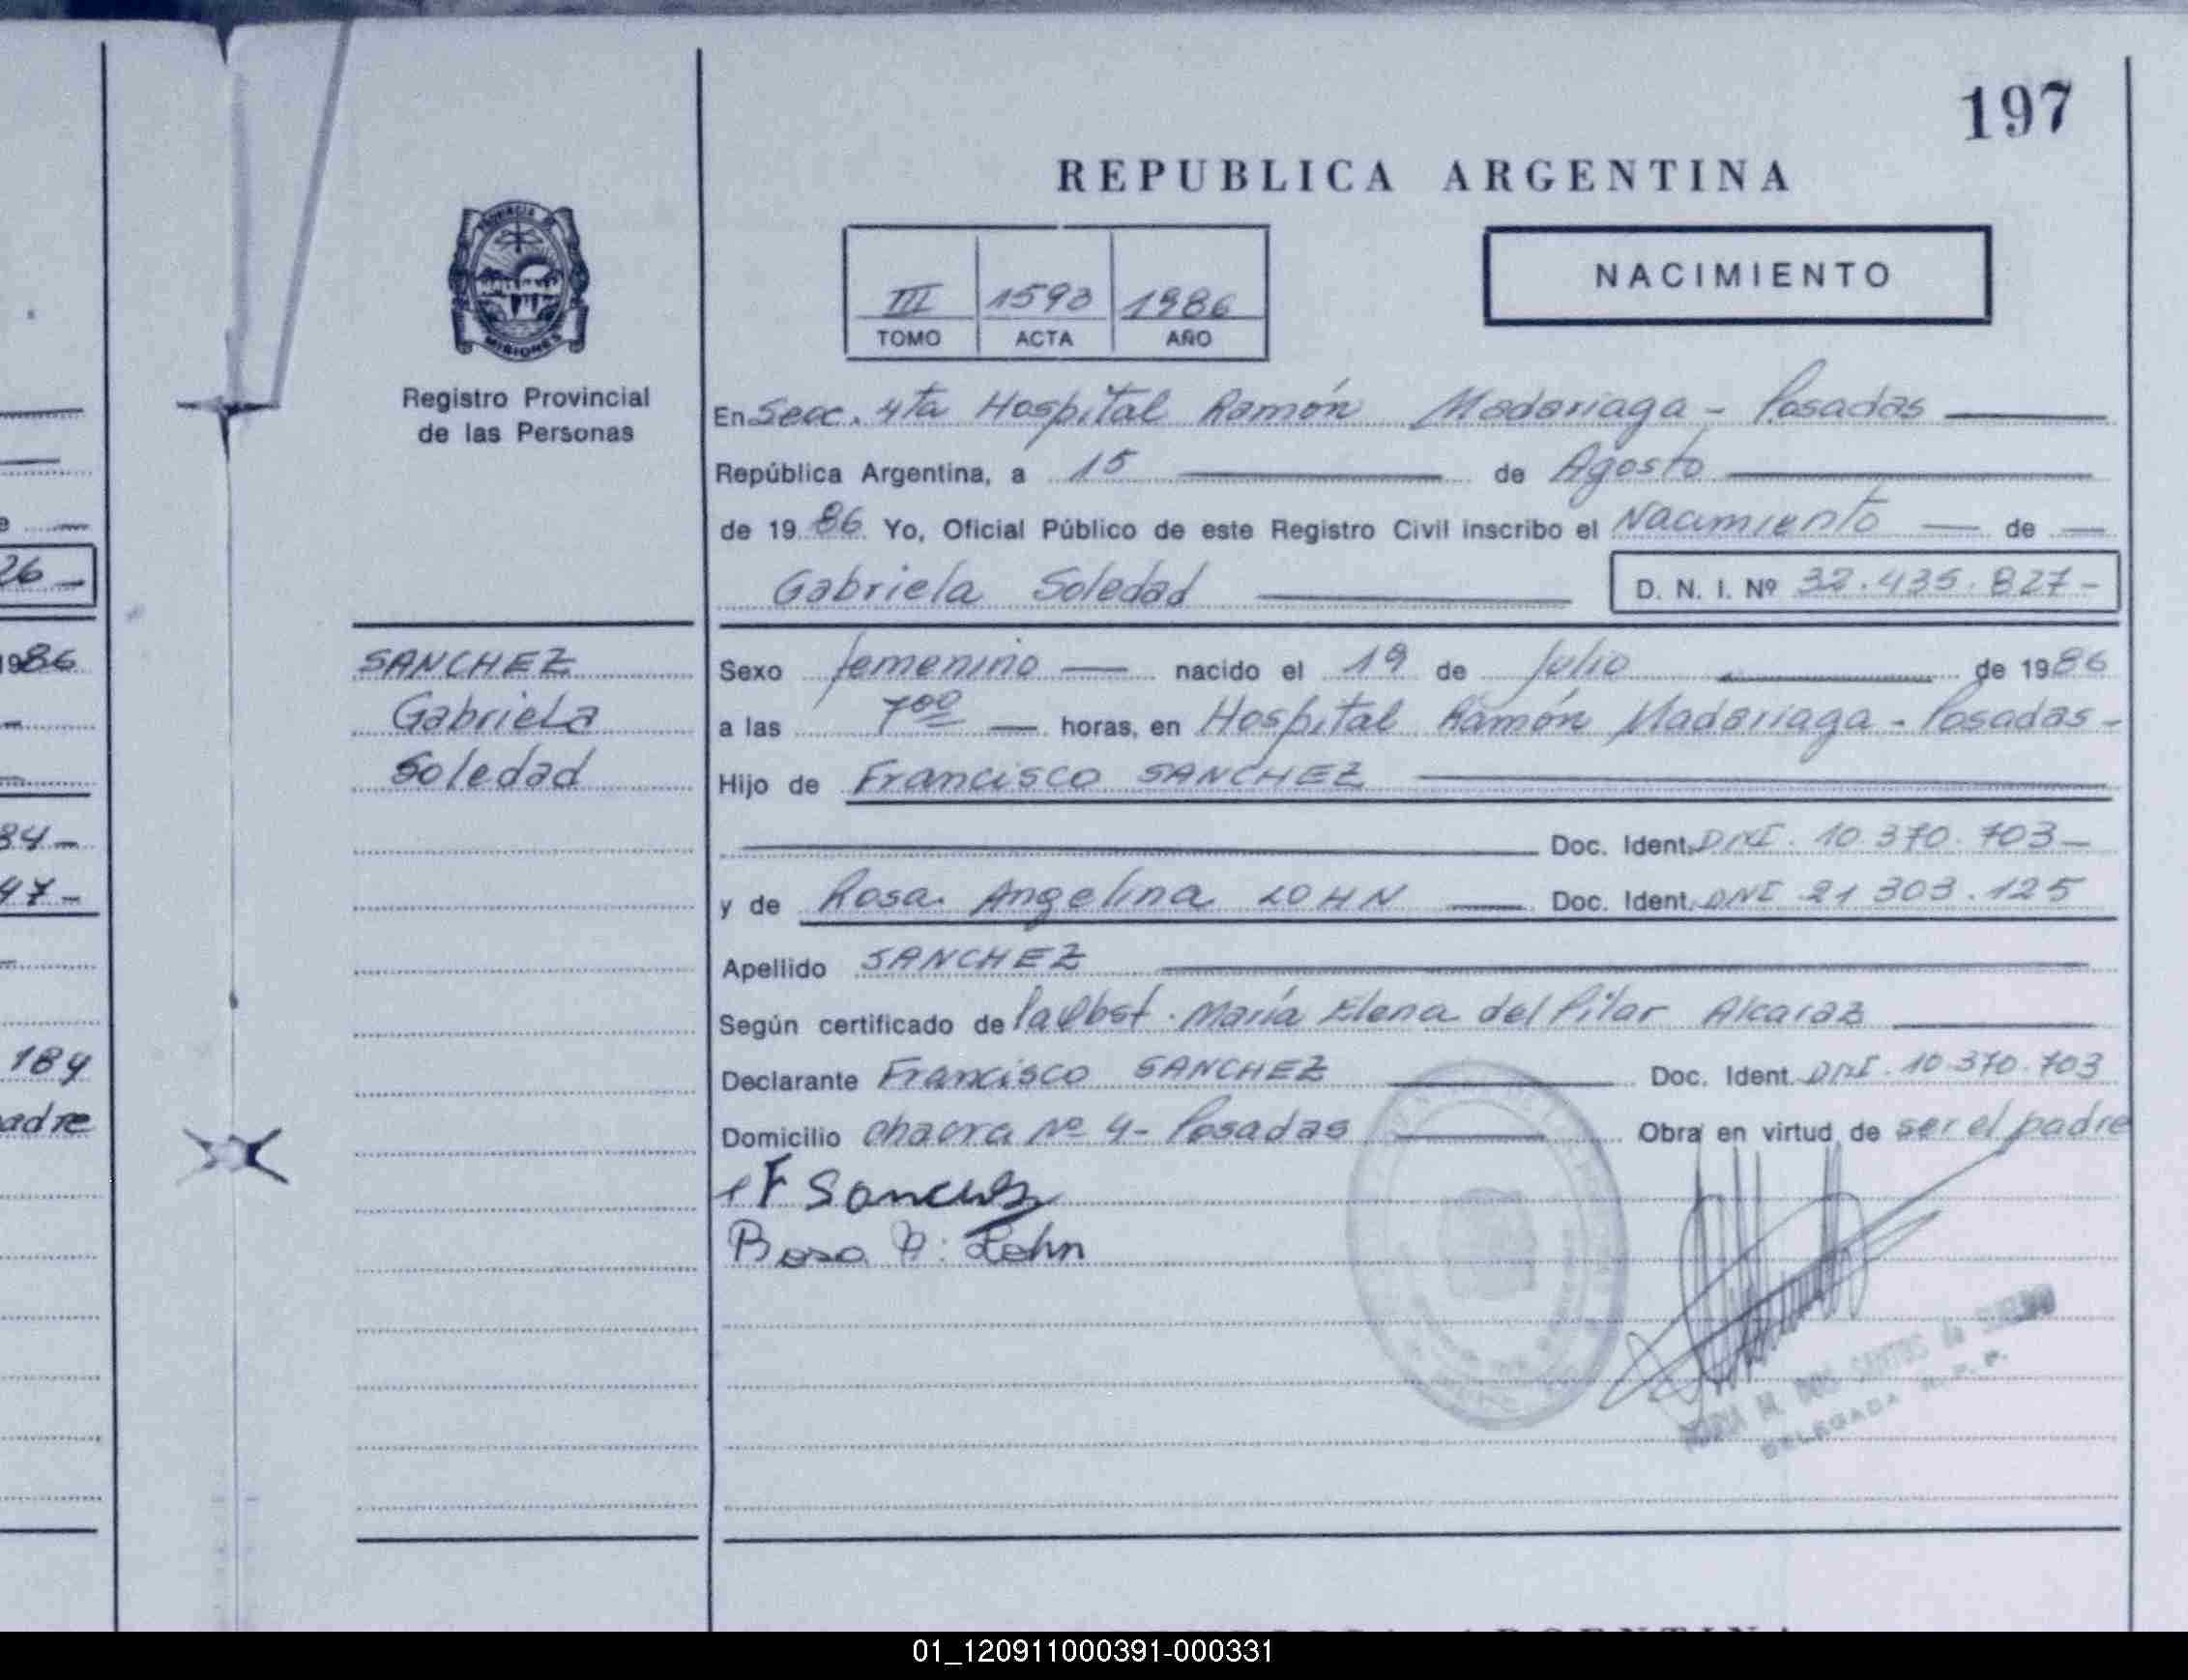 197
REPUBLICA ARGENTINA
III 1593 1986
TOMO ACTA AÑO
NACIMIENTO
PROVINCIA DE
MISIONES
Registro Provincial
de las Personas
En Secc. 4ta Hospital Ramón Madariaga - Posadas
República Argentina, a 15 de Agosto
de 1986 Yo, Oficial Público de este Registro Civil inscribo el Nacimiento de
Gabriela Soledad D. N. I. Nº 32.435.827-
SANCHEZ
Gabriela
Soledad
Sexo femenino nacido el 19 de Julio de 1986
a las 700 horas, en Hospital Ramón Madariaga - Posadas-
Hijo de Francisco SANCHEZ
Doc. Ident. DNI. 10.370.703-
y de Rosa Angelina LOHN Doc. Ident. DNI 21 303.125
Apellido SANCHEZ
Según certificado de María Elena del Pilar Alcaraz
Declarante Francisco SANCHEZ Doc. Ident. DNI. 10.370.703
Domicilio chacra Nº 4- Posadas Obra en virtud de ser el padre
F Sanchez
Rosa A. Lohn
M. DOS SANTOS de
DELEGADA R.P.P.
26-
1986
84-
47-
184
adre
01_120911000391-000331